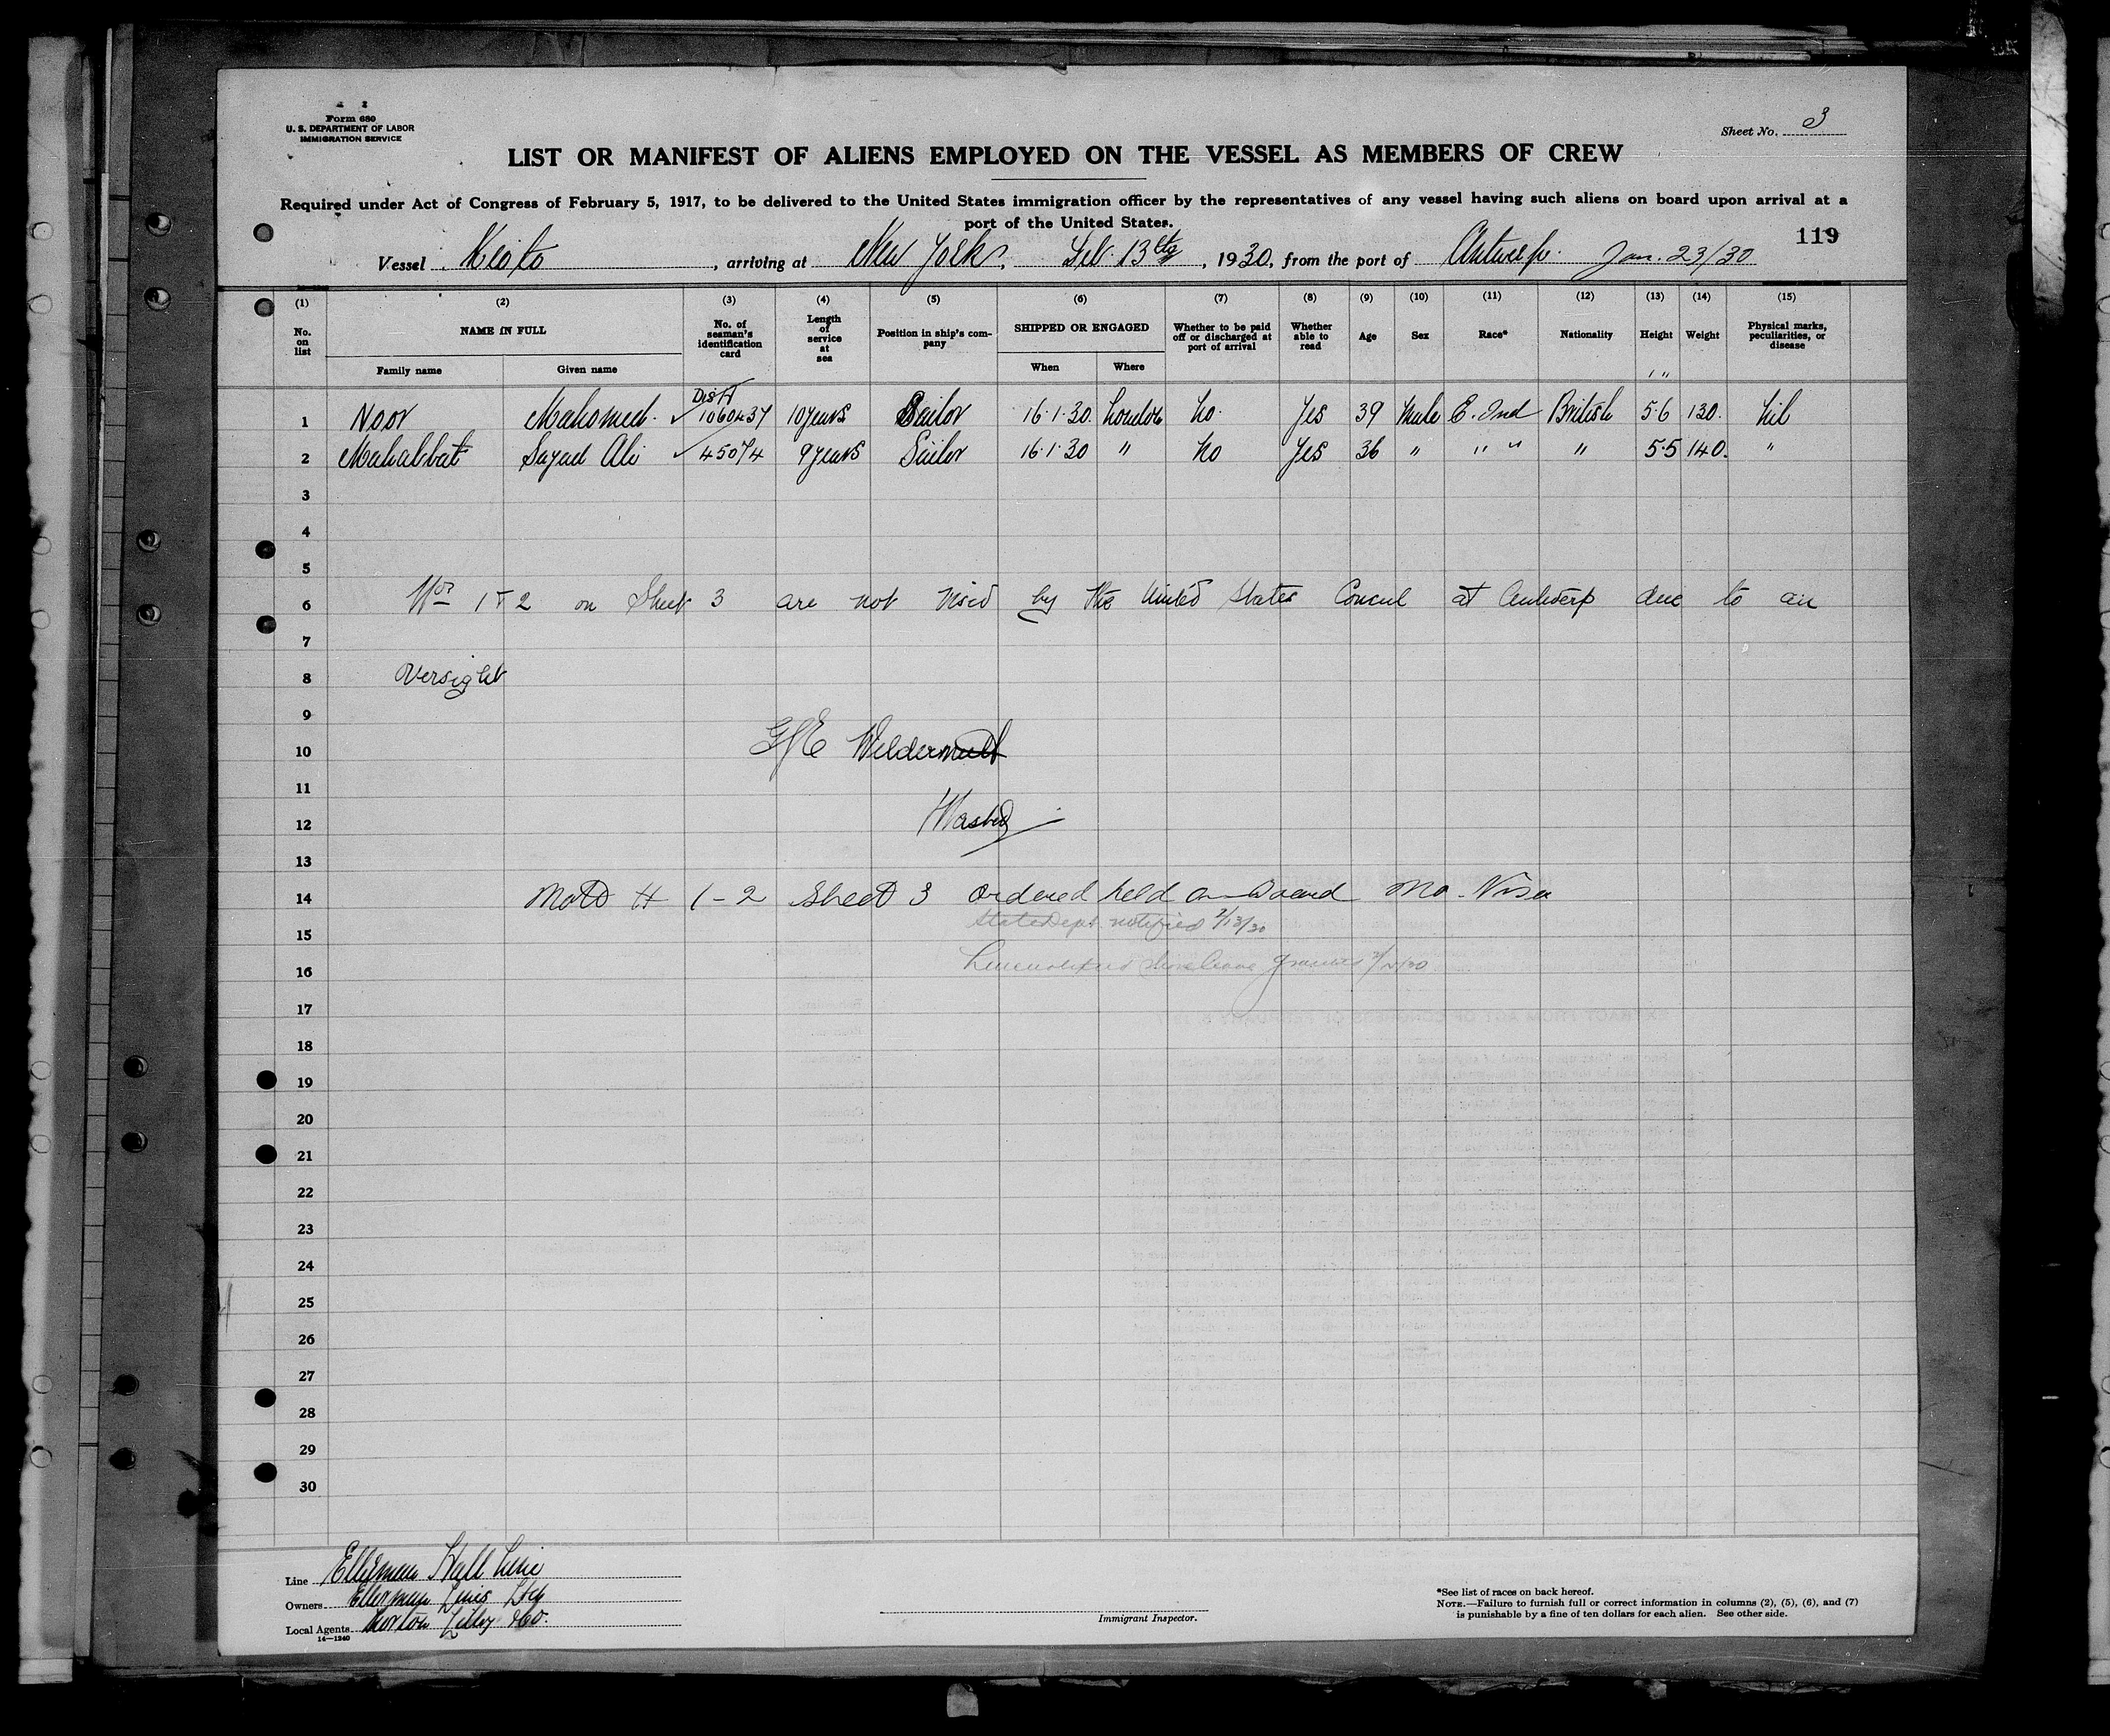 Form 680
U. S. DEPARTMENT OF LABOR
IMMIGRATION SERVICE
Sheet No. 3
LIST OR MANIFEST OF ALIENS EMPLOYED ON THE VESSEL AS MEMBERS OF CREW
Required under Act of Congress of February 5, 1917, to be delivered to the United States immigration officer by the representatives of any vessel having such aliens on board upon arrival at a
port of the United States.
119
Vessel Kioto, arriving at New York, Feb. 13th, 1930, from the port of Antwerp. Jan. 23/30
(1) (2) (3) (4) (5) (6) (7) (8) (9) (10) (11) (12) (13) (14) (15)
No. on list NAME IN FULL No. of seaman's identification card Length of service at sea Position in ship's company SHIPPED OR ENGAGED Whether to be paid off or discharged at port of arrival Whether able to read Age Sex Race* Nationality Height Weight Physical marks, peculiarities, or disease
Family name Given name When Where ' "
Dist
1 Noor Mahomed. ✓ 1060437 10 years Sailor 16.1.30. London No. Yes 39 Male E. Ind British 5.6 130. Nil
2 Mahabbat Sayad Ali ✓ 45074 9 years Sailor 16.1.30 " No Yes 36 " " " " 5.5 140. "
3
4
5
6 Nos 1 & 2 on Sheet 3 are not visèd by the United States Concul at Antwerp due to an
7
8 oversight
9
10 Wildermuth
11
12 Master
13
14 1-2 Sheet 3 ordered held on board no visa
15 State Dept. notified 2/13/30
16 granted
17
18
19
20
21
22
23
24
25
26
27
28
29
30
Line Ellerman Hall Line
Owners Ellerman Lines Ltd
Local Agents Norton Lilly & Co.
14—1240
Immigrant Inspector.
*See list of races on back hereof.
NOTE.—Failure to furnish full or correct information in columns (2), (5), (6), and (7)
is punishable by a fine of ten dollars for each alien. See other side.